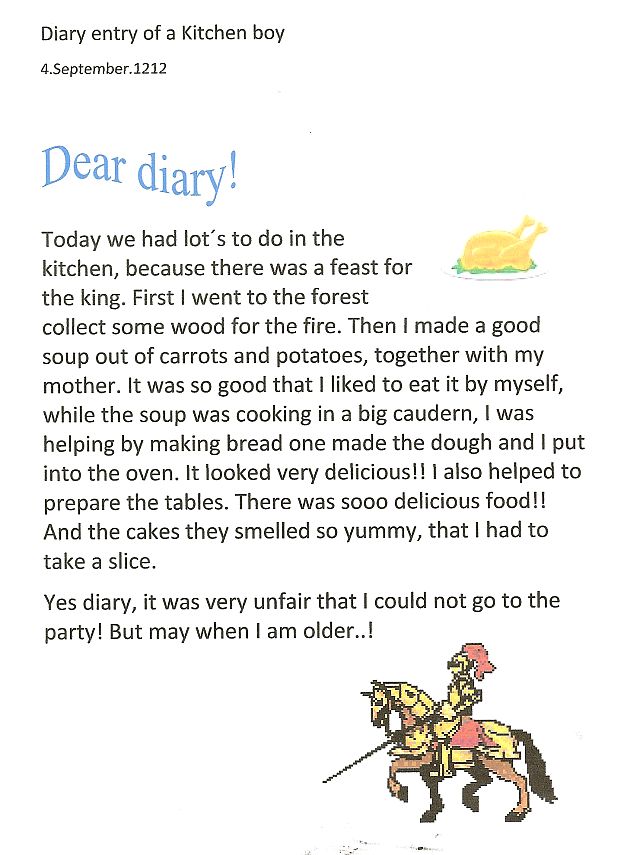 Diary entry of a Kitchen boy
4.September.1212
Dear diary!
Today we had lot´s to do in the
kitchen, because there was a feast for
the king. First I went to the forest
collect some wood for the fire. Then I made a good
soup out of carrots and potatoes, together with my
mother. It was so good that I liked to eat it by myself,
while the soup was cooking in a big caudern, I was
helping by making bread one made the dough and I put
into the oven. It looked very delicious!! I also helped to
prepare the tables. There was sooo delicious food!!
And the cakes they smelled so yummy, that I had to
take a slice.
Yes diary, it was very unfair that I could not go to the
party! But may when I am older..!